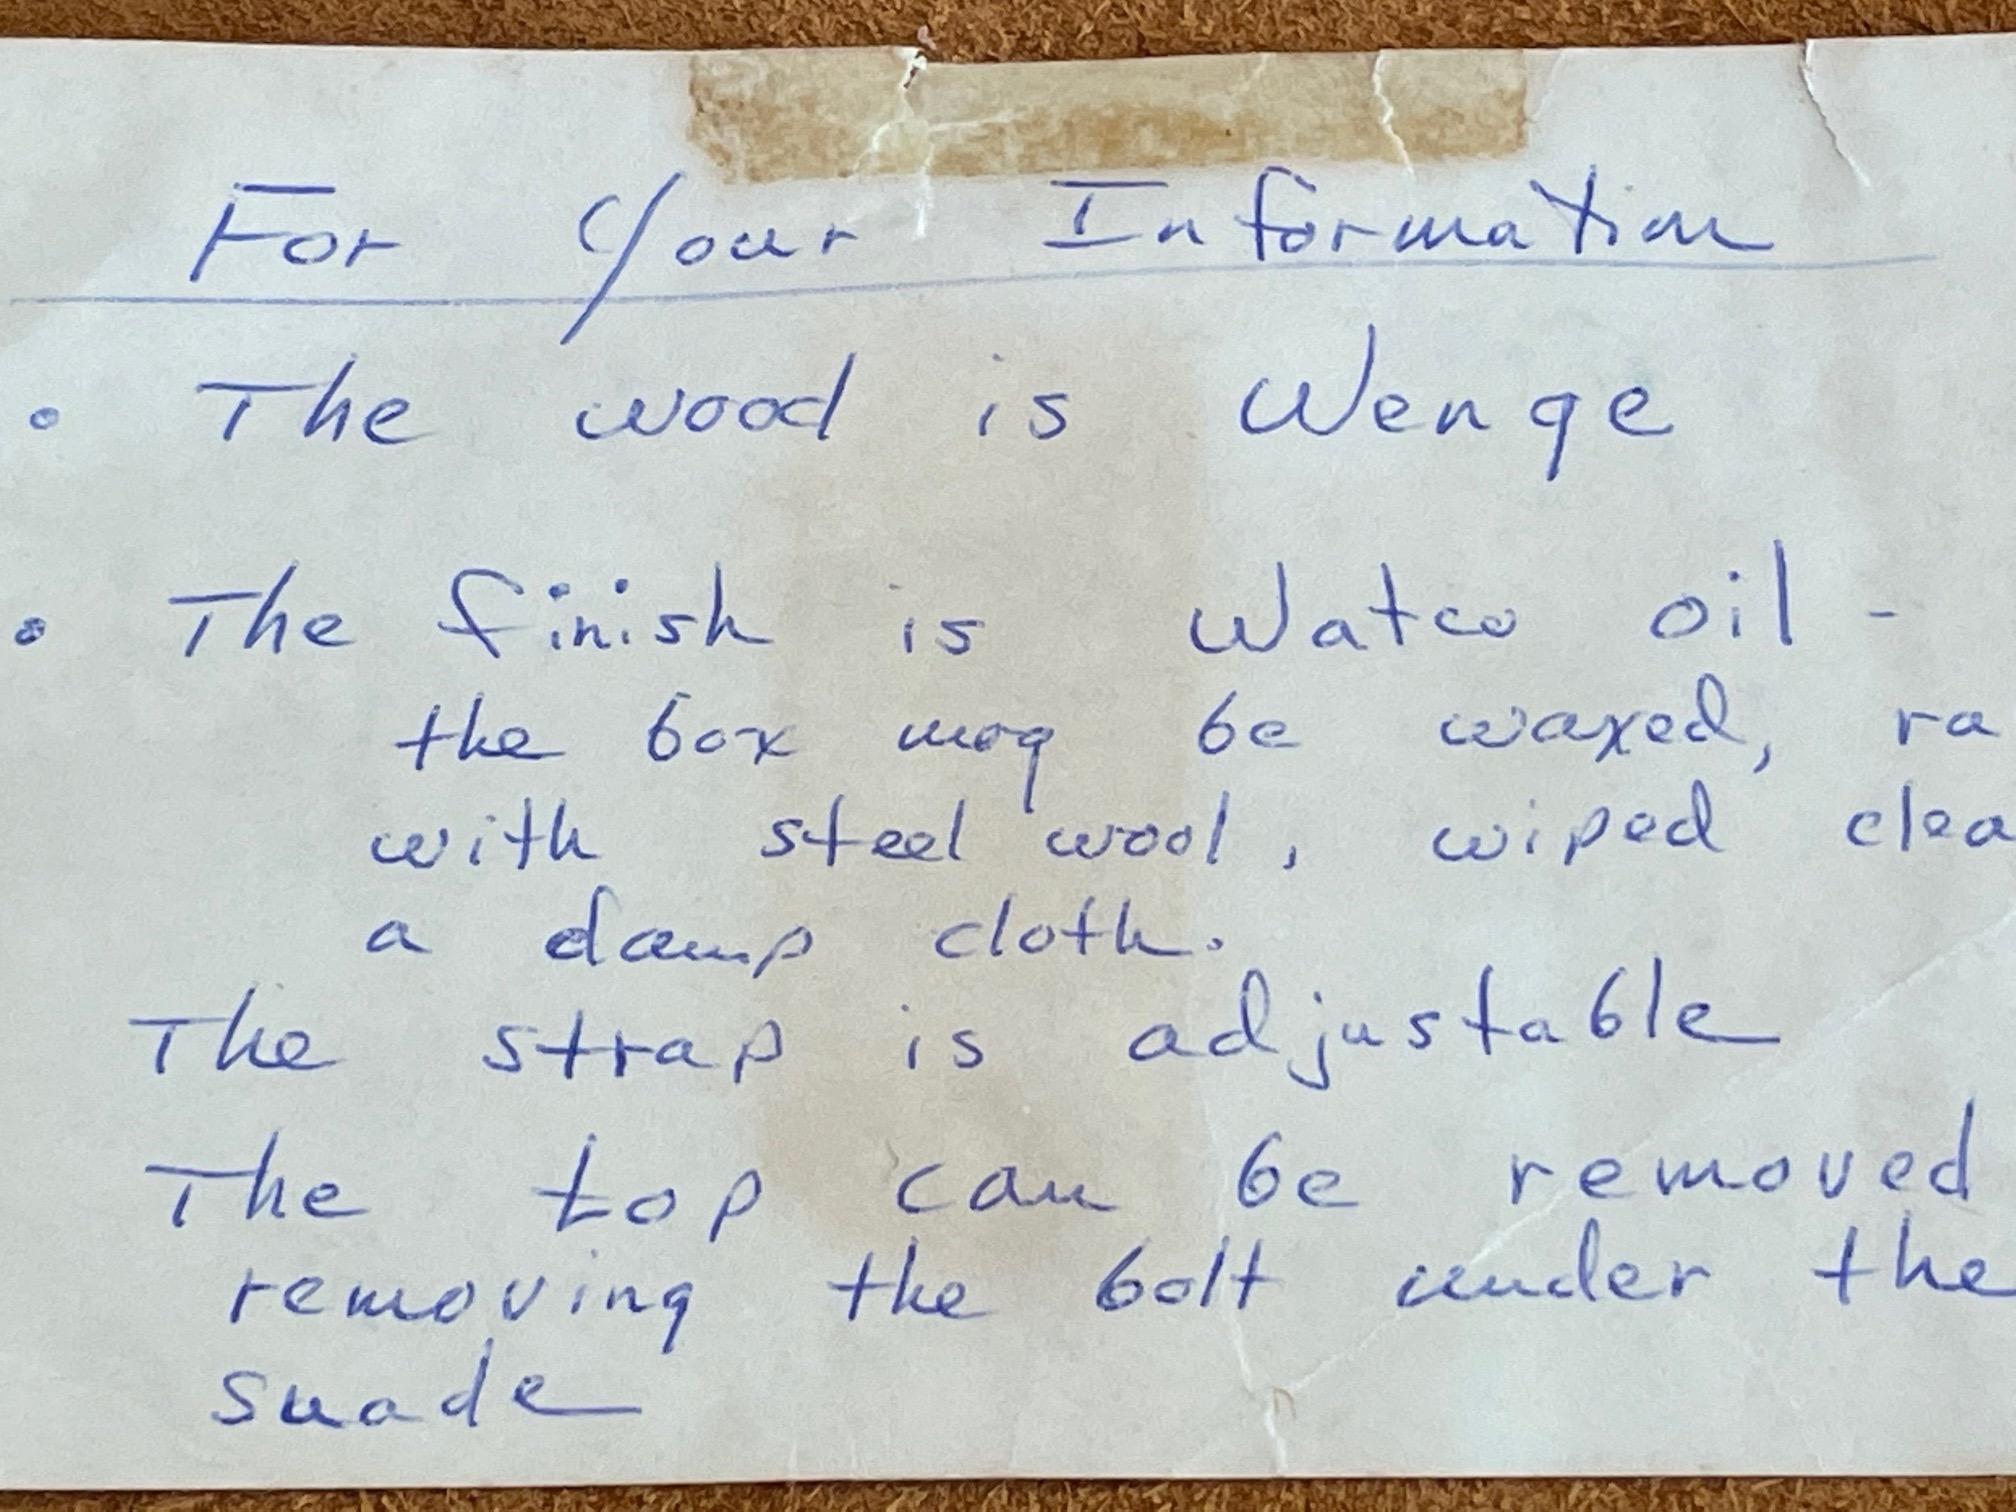 For Your Information
• The wood is Wenge
• The finish is Watco oil -
the box may be waxed, ra
with steel wool, wiped clea
a damp cloth.
The strap is adjustable
The top can be removed
removing the bolt under the
suade